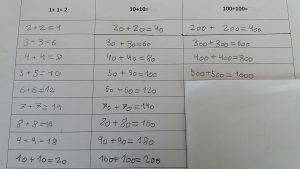 1+ 1= 2 10+10= 100+100=
2+2=4 20+20=40 200+200=400
3+3=6 30+30=60 300+300=600
4+4=8 40+40=80 400+400=800
5+5=10 50+50=100 500+500=1000
6+6=12 60+60=120
7+7=14 70+70=140
8+8=16 80+80=160
9+9=18 90+90=180
10+10=20 100+100=200